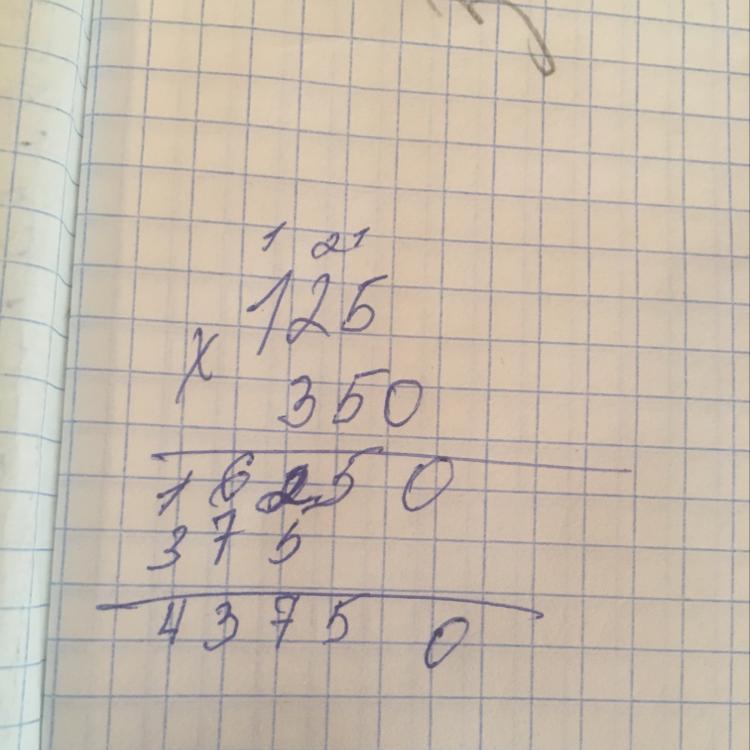 1 21
125
X
350
16250
375
43750